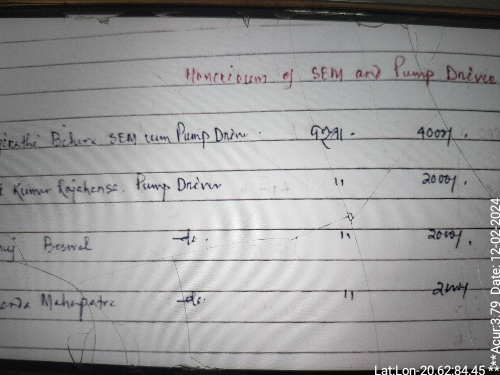 Honorioum of SEM and Pump Driver
Behera SEM cum Pump Driver. 4000/.
Kumar Rajahansa. Pump Driver " 2000/.
do. " 2000/.
Mahapatra do. " 2000/
Lat:Lon-20.62:84.45
***Acur:3.79 Date: 12-02-2024